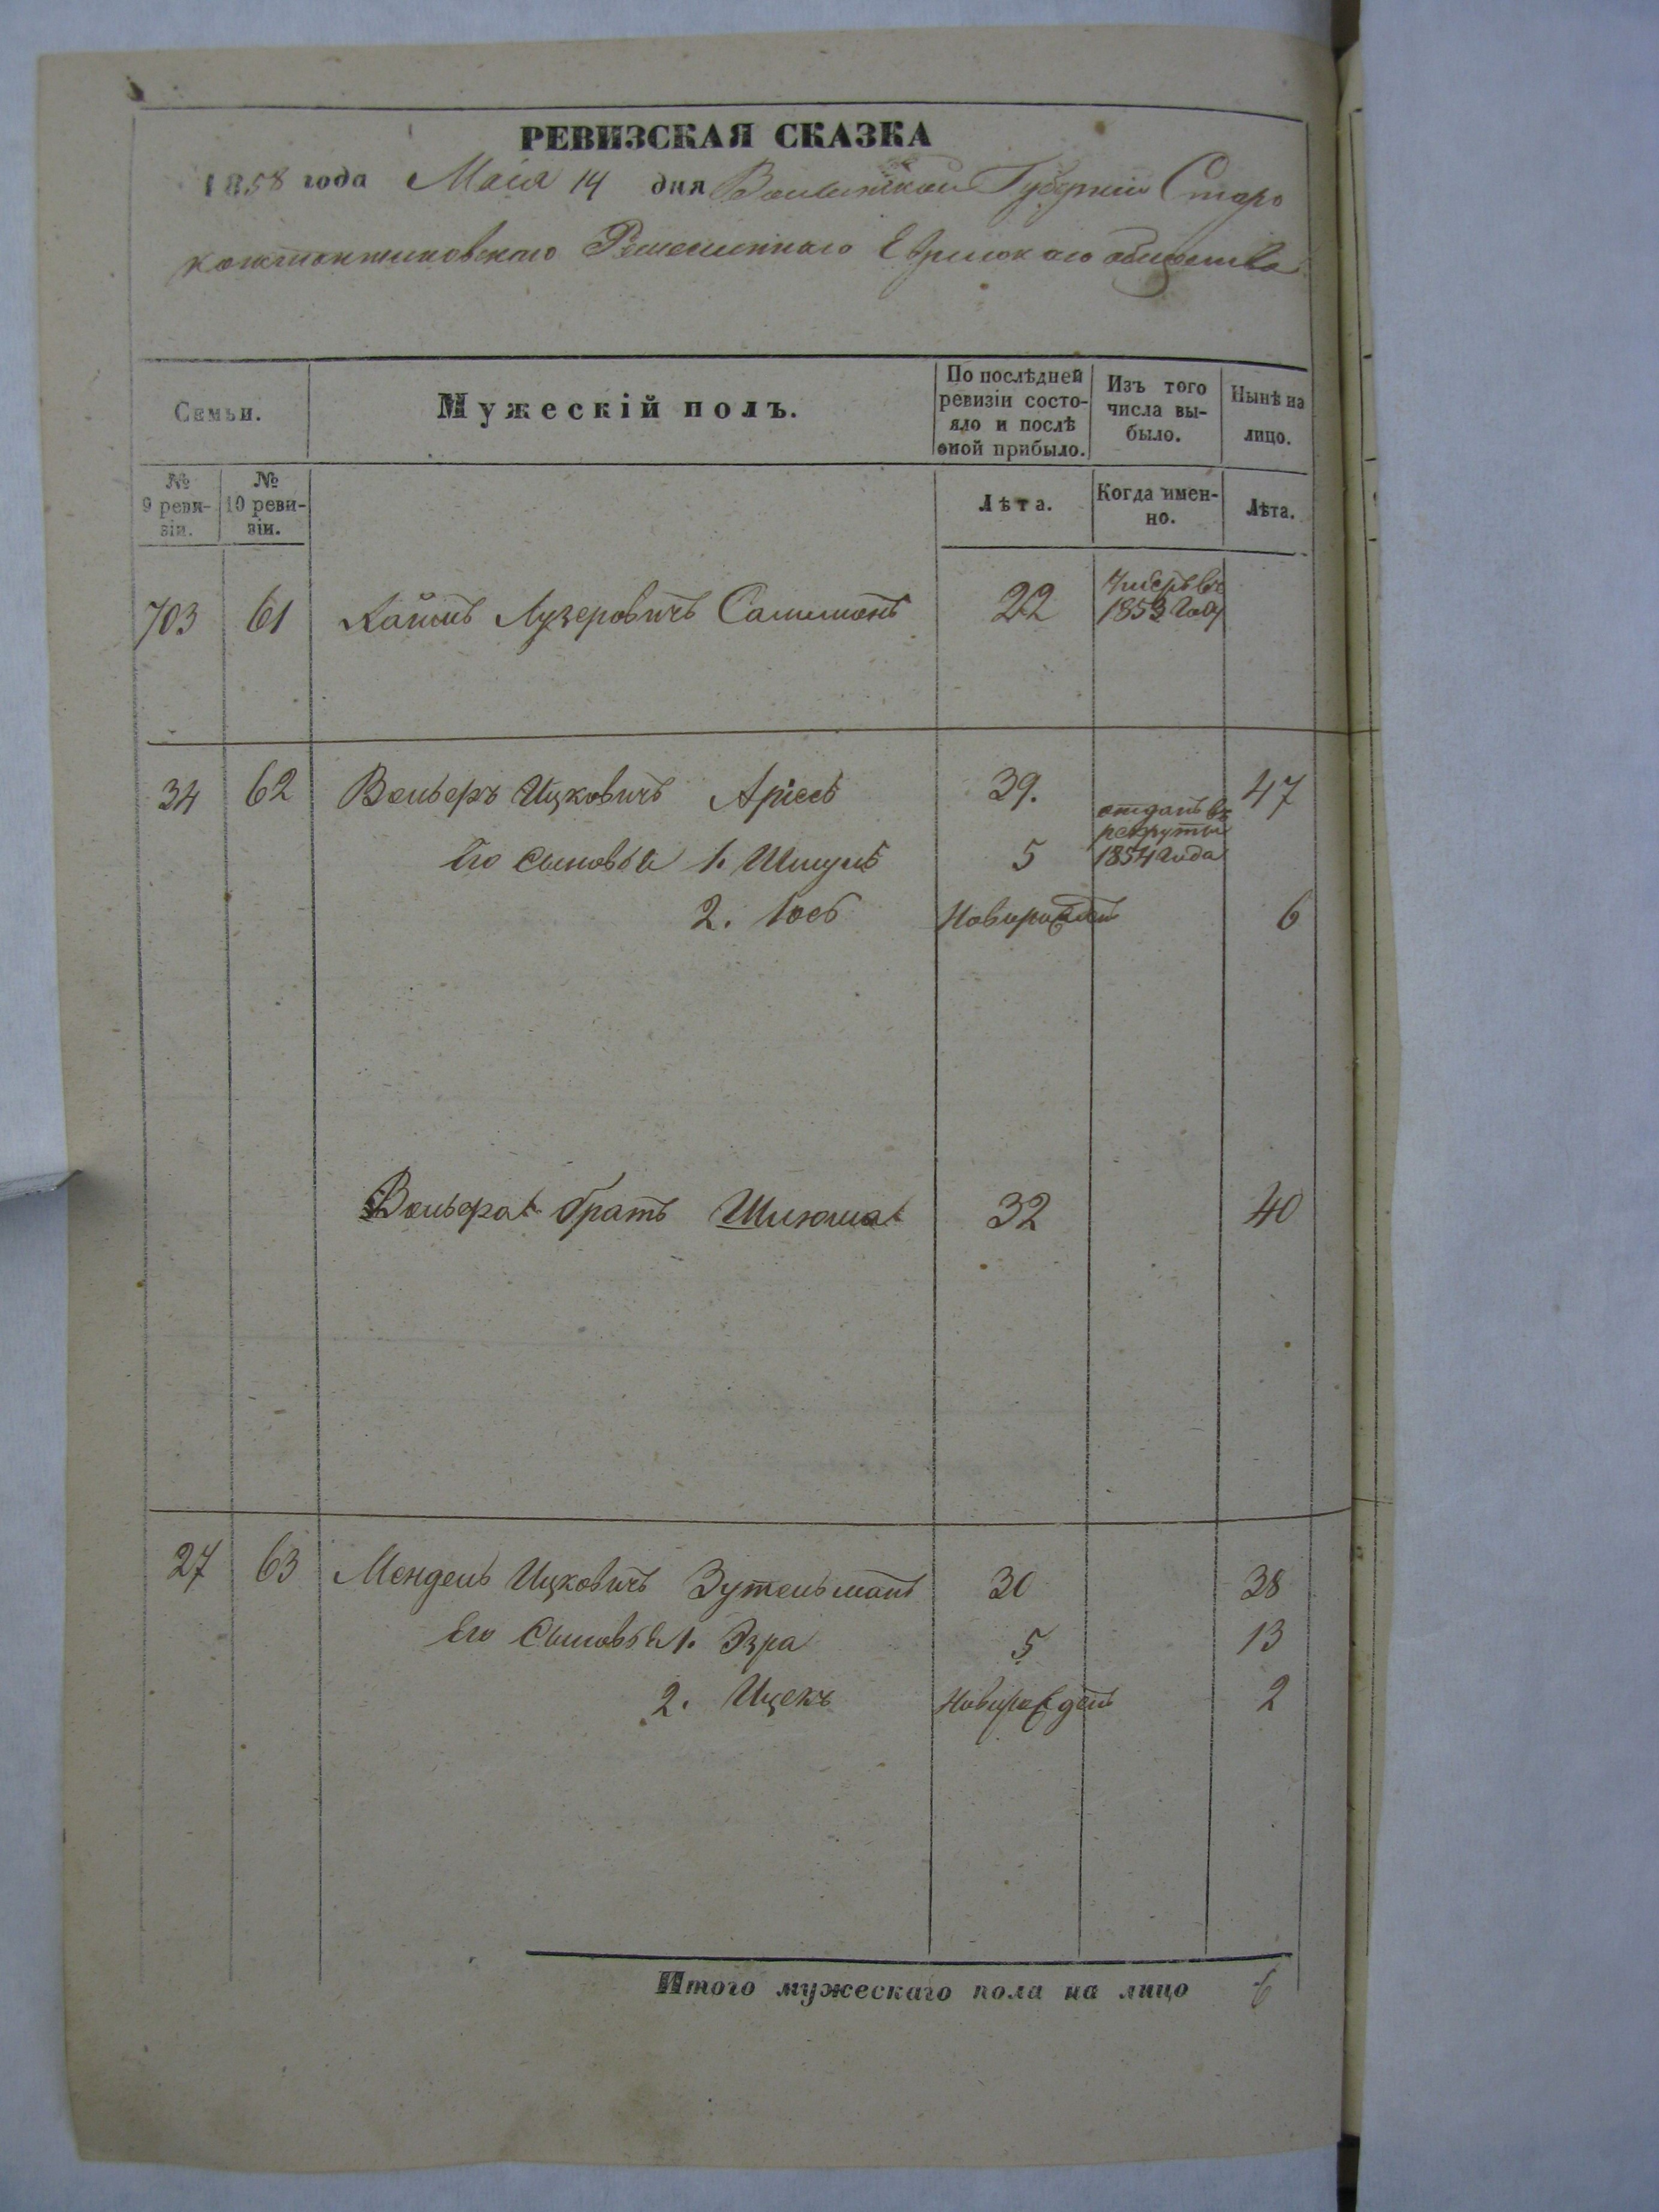 РЕВИЗСКАЯ СКАЗКА
1858 года Маія 14 дня Волынской Губерніи Старо
константиновскаго Ремесленнаго Еврейскаго общества
Семьи. Мужескій полъ. По послѣдней ревизіи состояло и послѣ оной прибыло. Изъ того числа выбыло. Нынѣ на лицо.
№ 9 ревизіи. № 10 ревизіи. Лѣта. Когда именно. Лѣта.
703 61 Хаимъ Лузеровичъ 22 Умеръ въ 1853 Году
34 62 Вольфъ Ицковичъ 39. 47
Его Сыновья 1. Шмуль 5 отданъ въ рекруты 1854 Года
2. Іосъ Новорожденъ 6
Вольфа братъ Шлюма 32 40
27 63 Мендель Ицковичъ Зутельманъ 30 38
Его Сыновья 1. Эзра 5 13
2. Ицекъ Новорожденъ 2
Итого мужескаго пола на лицо 6